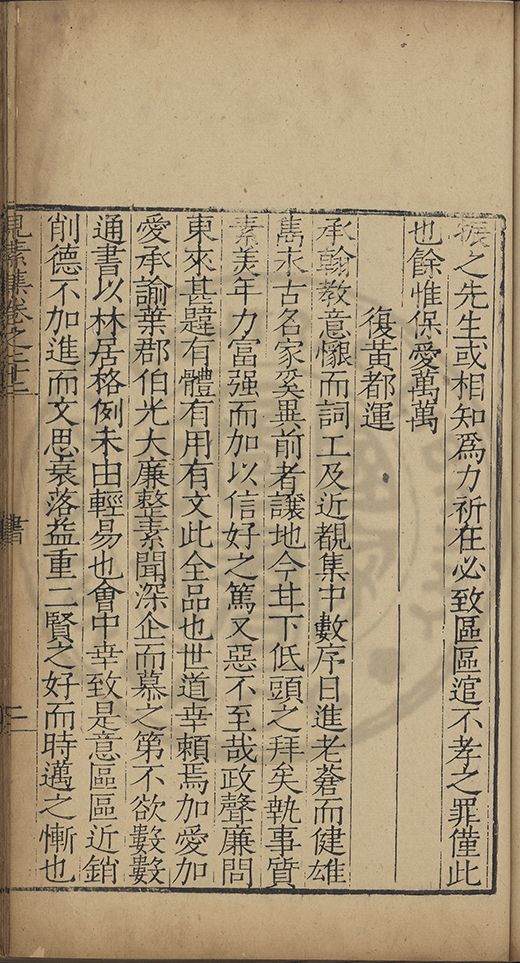 振之先生或相知爲力祈在必致區區逭不孝之罪僅此
也餘惟保愛萬萬
復黃都運
承翰教意懷而詞工及近覩集中數序日進老蒼而健雄
雋永古名家奚異前者讓地今甘下低頭之拜矣執事質
素美年力富强而加以信好之篤又惡不至哉政聲廉問
東來甚韙有體有用有文此全品也世道幸賴焉加愛加
愛承諭葉郡伯光大廉整素聞深企而慕之第不欲數數
通書以林居格例未由輕易也會中幸致是意區區近銷
削德不加進而文思衰落益重二賢之好而時邁之慚也
見素集卷之二十二
書
二